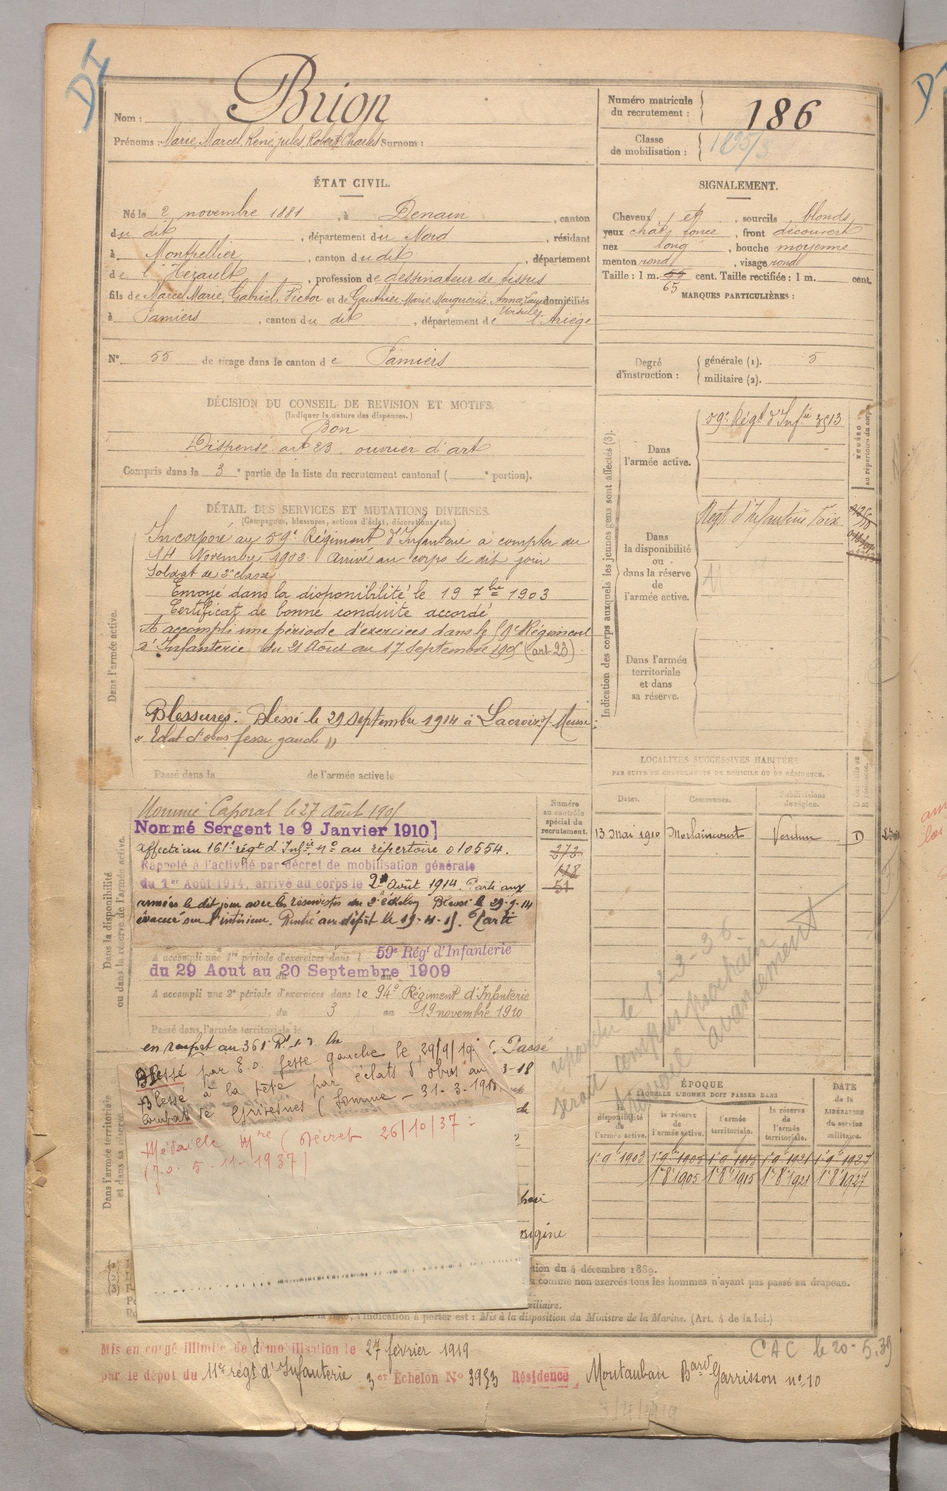 DI
Nom : Brion
Prénoms : Marie, Marcel, René, Jules, Robert, Charles Surnom :
Numéro matricule du recrutement : 186
Classe de mobilisation :
ÉTAT CIVIL.
Né le 2 novembre 1881, à Denain, canton
du dit, département du Nord, résidant
à Montpellier, canton du dit, département
de l'Hérault, profession de dessinateur de
fils de Marcel Marie, Gabriel, Victor et de Gauthier Marie Marguerite Anna domiciliés
à Pamiers, canton du dit, département de l'Ariège
N° 55 de tirage dans le canton de Pamiers
SIGNALEMENT.
Cheveux et, sourcils blonds
yeux chat. foncé, front découvert
nez long, bouche moyenne
menton rond, visage rond
Taille : 1 m. 65 cent. Taille rectifiée : 1 m. cent.
MARQUES PARTICULIÈRES :
Degré d'instruction : générale (1). 3
militaire (2).
DÉCISION DU CONSEIL DE REVISION ET MOTIFS.
(Indiquer la nature des dispenses.)
Bon
Dispensé art 23. ouvrier d'art
Compris dans la 3e partie de la liste du recrutement cantonal ( e portion).
DÉTAIL DES SERVICES ET MUTATIONS DIVERSES.
(Campagnes, blessures, actions d'éclat, décorations, etc.)
Dans l'armée active.
Incorporé au 59e Régiment d'Infanterie à compter du
14 Novembre 1902 Arrivé au corps le dit jour
Soldat de 2e classe
Envoyé dans la disponibilité le 19 7bre 1903
Certificat de bonne conduite accordé
A accompli une période d'exercices dans le 59e Régiment
d'Infanterie du 21 Août au 17 Septembre (art. 23)
Blessures : Blessé le 29 septembre 1914 à Lacroix s/ Meuse :
" Eclat d'obus fesse gauche "
Passé dans la de l'armée active le
Indication des corps auxquels les jeunes gens sont affectés (3).
Dans l'armée active.
59e Régt d'Infie 3513
Dans la disponibilité ou dans la réserve de l'armée active.
Régt d'Infanterie Foix
Dans l'armée territoriale et dans sa réserve.
LOCALITÉS SUCCESSIVES HABITÉES
PAR SUITE DE CHANGEMENTS DE DOMICILE OU DE RÉSIDENCE.
Dates. Communes. Subdivisions de région.
13 Mai 1910 Morlaincourt Verdun D
Dans la disponibilité ou dans la réserve de l'armée active.
Nommé Caporal le 27 Août
Nommé Sergent le 9 Janvier 1910
affecté au 161e régt d'Infrie, no au répertoire 010554.
Rappelé à l'activité par décret de mobilisation générale
du 1er Août 1914, arrivé au corps le 2 Août 1914 Parti aux
armées le dit jour avec les réservistes du 2e échelon Blessé le 29-9-14
évacué sur l'intérieur. Rentré au dépôt le Parti
Numéro au contrôle spécial du recrutement.
272
128
51
A accompli une 1re période d'exercices dans l 59e Régt d'Infanterie
du 29 Aout au 20 Septembre 1909
A accompli une 2e période d'exercices dans le 94e Régiment d'Infanterie
du 3 au 19 novembre 1910
Passé dans l'armée territoriale le
en renfort au Passé
Dans l'armée territoriale et dans sa réserve
Blessé par E.O. fesse gauche le 29/9/19
Blessé à la tête par éclats d'obus au
combat de Grivesnes (Somme - 31-3-1918)
Médaille Mre (Décret 26/10/37 -
J.O. 5-11-1937)
répondu le 12-3-36
serait compris prochain
travail avancement
ÉPOQUE
À LAQUELLE L'HOMME DOIT PASSER DANS
la disponibilité de l'armée active. la réserve de l'armée active. l'armée territoriale. la réserve de l'armée territoriale.
DATE de la LIBÉRATION du service militaire.
1er 9e 1903 1er 9e 1905 1er 9e 1915 1er 9e 1921 1er 9e 1927
1er 8e 1905 1er 8e 1915 1er 8e 1921 1er 8e 1927
du 4 décembre 1889.
comme non exercés tous les hommes n'ayant pas passé au drapeau.
l'indication à porter est : Mis à la disposition du Ministre de la Marine. (Art. 4 de la loi.)
CAC le 20-5.39
Mis en congé illimité de démobilisation le 27 février 1919
par le dépôt du 11e régt d'Infanterie 3e Échelon N° 3953 Résidence Montauban Bard Garrisson no 10